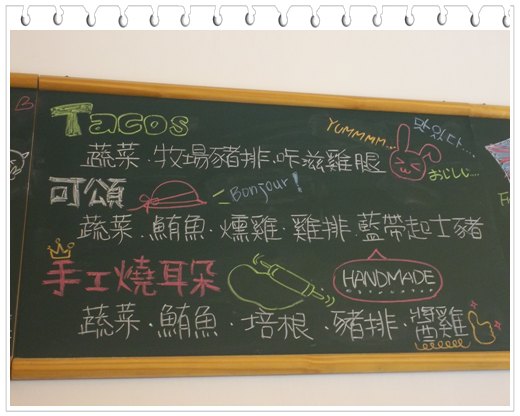 B
Tacos
YUMMMM...
맛있다...
蔬菜．牧場豬排．咔滋雞腿
おいしい...
可頌
Bonjour!
蔬菜．鮪魚．燻雞．雞排．藍帶起士豬
手工燒耳朵
HANDMADE
蔬菜．鮪魚．培根．豬排．醬雞